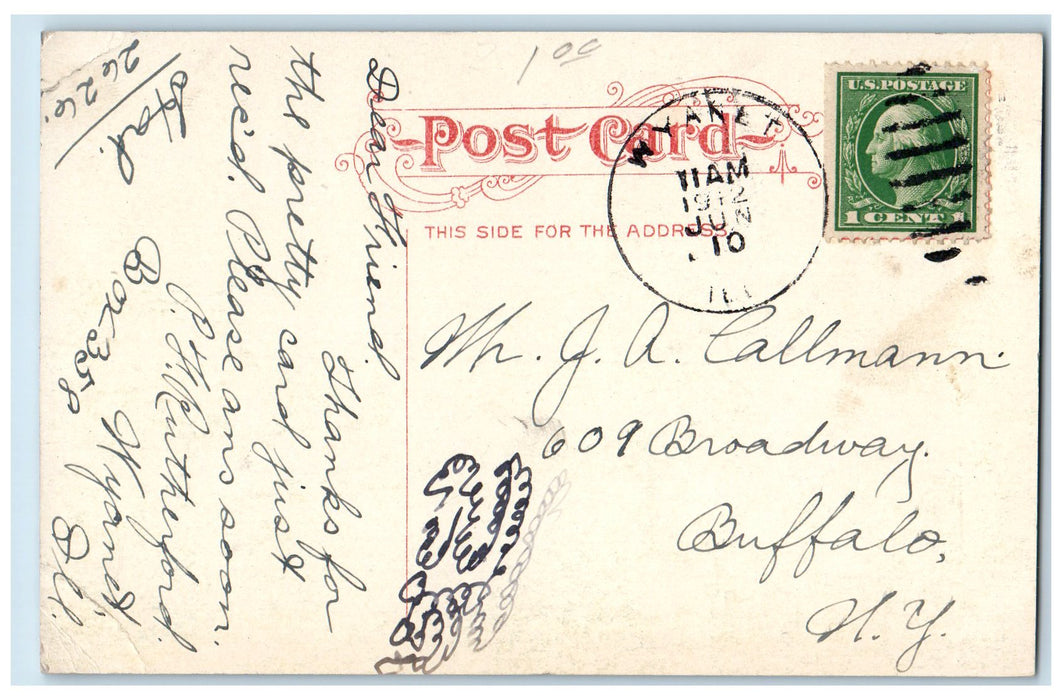 1 00
Post Card
THIS SIDE FOR THE ADDRESS.
WYANET
11 AM
1912
JUN
10
ILL
U.S. POSTAGE
1 CENT 1
Mr. J. A. Callmann.
609 Broadway.
Buffalo,
N.Y.
Dear Friend.
Thanks for
the pretty card just
rec'd. Please ans soon.
P. H. Rutherford.
Box 358 Wyanet
Ill.
2626.